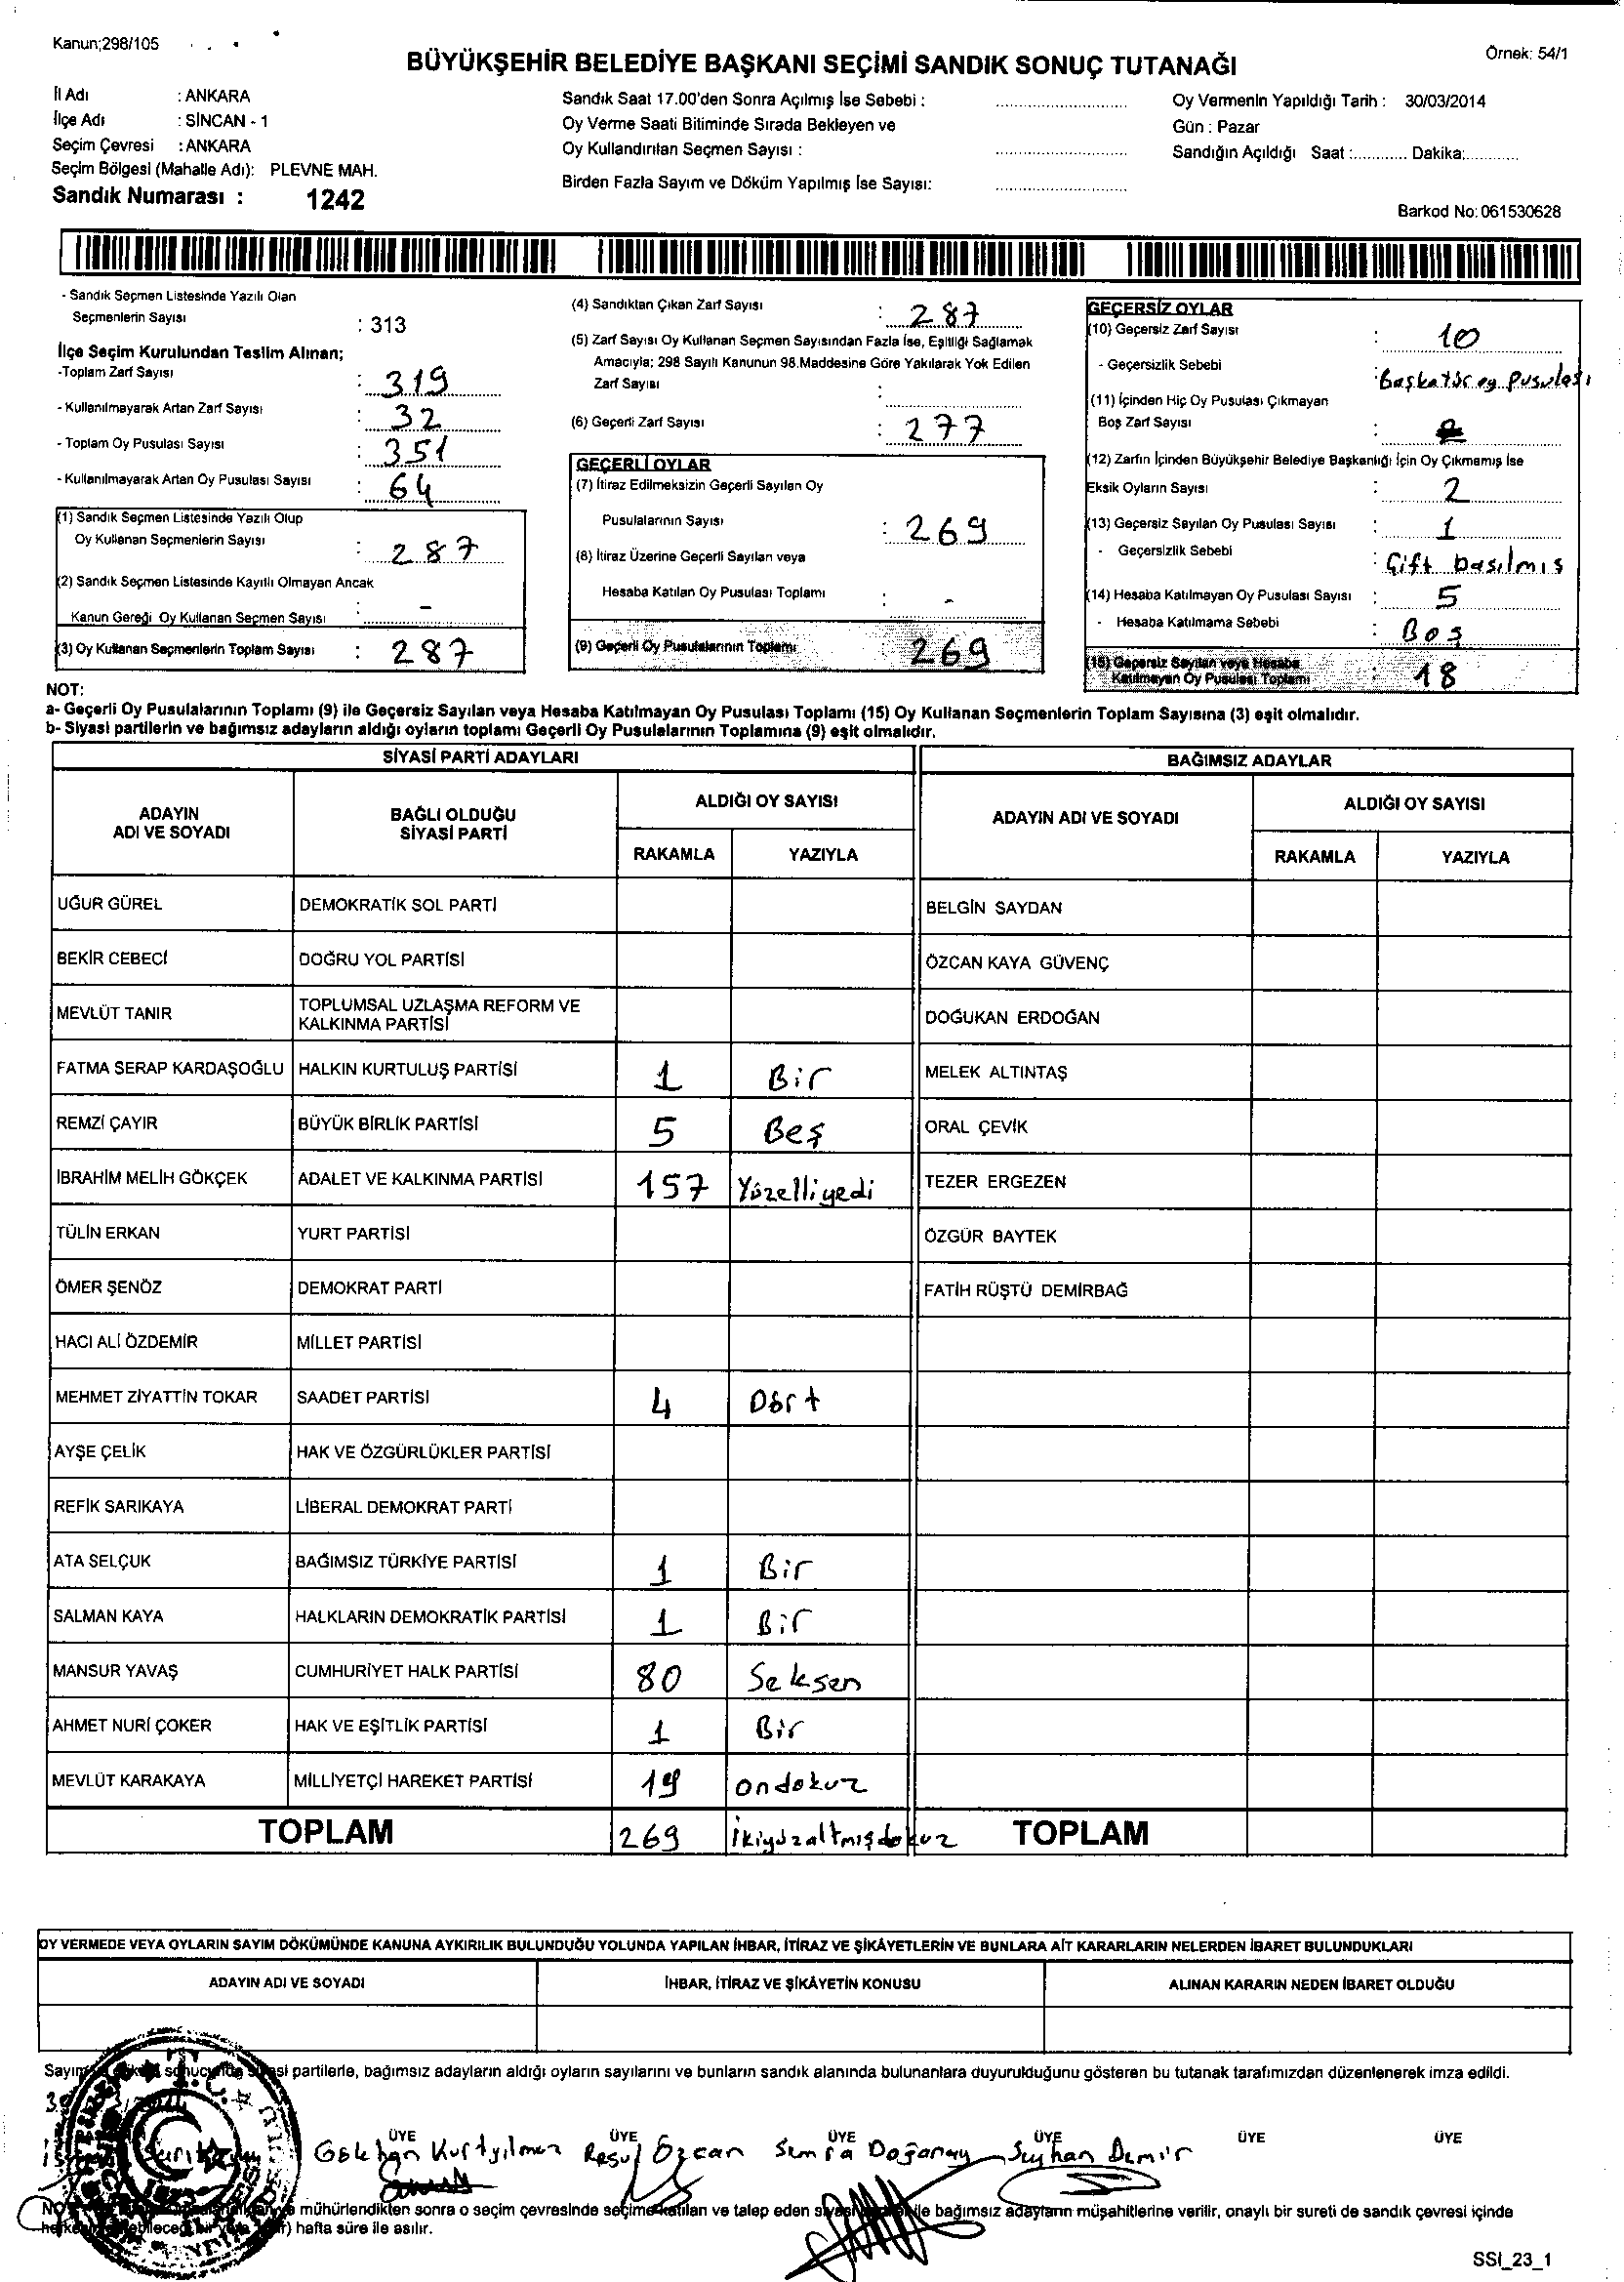 Kanun;298/105
Örnek: 54/1
BÜYÜKŞEHİR BELEDİYE BAŞKANI SEÇİMİ SANDIK SONUÇ TUTANAĞI
İl Adı : ANKARA
İlçe Adı : SİNCAN - 1
Seçim Çevresi : ANKARA
Seçim Bölgesi (Mahalle Adı): PLEVNE MAH.
Sandık Numarası : 1242
Sandık Saat 17.00'den Sonra Açılmış İse Sebebi :
Oy Verme Saati Bitiminde Sırada Bekleyen ve
Oy Kullandırılan Seçmen Sayısı :
Birden Fazla Sayım ve Döküm Yapılmış İse Sayısı:
Oy Vermenin Yapıldığı Tarih : 30/03/2014
Gün : Pazar
Sandığın Açıldığı Saat :............ Dakika:............
Barkod No: 061530628
- Sandık Seçmen Listesinde Yazılı Olan
Seçmenlerin Sayısı : 313
İlçe Seçim Kurulundan Teslim Alınan;
-Toplam Zarf Sayısı : 319
- Kullanılmayarak Artan Zarf Sayısı : 32
- Toplam Oy Pusulası Sayısı : 351
- Kullanılmayarak Artan Oy Pusulası Sayısı : 64
(1) Sandık Seçmen Listesinde Yazılı Olup
Oy Kullanan Seçmenlerin Sayısı : 287
(2) Sandık Seçmen Listesinde Kayıtlı Olmayan Ancak
Kanun Gereği Oy Kullanan Seçmen Sayısı : -
(3) Oy Kullanan Seçmenlerin Toplam Sayısı : 287
(4) Sandıktan Çıkan Zarf Sayısı : 287
(5) Zarf Sayısı Oy Kullanan Seçmen Sayısından Fazla İse, Eşitliği Sağlamak
Amacıyla; 298 Sayılı Kanunun 98.Maddesine Göre Yakılarak Yok Edilen
Zarf Sayısı :
(6) Geçerli Zarf Sayısı : 277
GEÇERLİ OYLAR
(7) İtiraz Edilmeksizin Geçerli Sayılan Oy
Pusulalarının Sayısı : 269
(8) İtiraz Üzerine Geçerli Sayılan veya
Hesaba Katılan Oy Pusulası Toplamı : -
(9) Geçerli Oy Pusulalarının Toplamı 269
GEÇERSİZ OYLAR
(10) Geçersiz Zarf Sayısı : 10
- Geçersizlik Sebebi : Başkatür oy pusulası
(11) İçinden Hiç Oy Pusulası Çıkmayan
Boş Zarf Sayısı :
(12) Zarfın İçinden Büyükşehir Belediye Başkanlığı İçin Oy Çıkmamış İse
Eksik Oyların Sayısı : 2
(13) Geçersiz Sayılan Oy Pusulası Sayısı : 1
- Geçersizlik Sebebi : Çift basılmıs
(14) Hesaba Katılmayan Oy Pusulası Sayısı : 5
- Hesaba Katılmama Sebebi : Boş
(15) Geçersiz Sayılan veya Hesaba
Katılmayan Oy Pusulası Toplamı : 18
NOT:
a- Geçerli Oy Pusulalarının Toplamı (9) ile Geçersiz Sayılan veya Hesaba Katılmayan Oy Pusulası Toplamı (15) Oy Kullanan Seçmenlerin Toplam Sayısına (3) eşit olmalıdır.
b- Siyasi partilerin ve bağımsız adayların aldığı oyların toplamı Geçerli Oy Pusulalarının Toplamına (9) eşit olmalıdır.
SİYASİ PARTİ ADAYLARI BAĞIMSIZ ADAYLAR
ADAYIN ADI VE SOYADI BAĞLI OLDUĞU SİYASİ PARTİ ALDIĞI OY SAYISI ADAYIN ADI VE SOYADI ALDIĞI OY SAYISI
RAKAMLA YAZIYLA RAKAMLA YAZIYLA
UĞUR GÜREL DEMOKRATİK SOL PARTİ BELGİN SAYDAN
BEKİR CEBECİ DOĞRU YOL PARTİSİ ÖZCAN KAYA GÜVENÇ
MEVLÜT TANIR TOPLUMSAL UZLAŞMA REFORM VE KALKINMA PARTİSİ DOĞUKAN ERDOĞAN
FATMA SERAP KARDAŞOĞLU HALKIN KURTULUŞ PARTİSİ 1 Bir MELEK ALTINTAŞ
REMZİ ÇAYIR BÜYÜK BİRLİK PARTİSİ 5 Beş ORAL ÇEVİK
İBRAHİM MELİH GÖKÇEK ADALET VE KALKINMA PARTİSİ 157 Yüzelliyedi TEZER ERGEZEN
TÜLİN ERKAN YURT PARTİSİ ÖZGÜR BAYTEK
ÖMER ŞENÖZ DEMOKRAT PARTİ FATİH RÜŞTÜ DEMİRBAĞ
HACI ALİ ÖZDEMİR MİLLET PARTİSİ
MEHMET ZİYATTİN TOKAR SAADET PARTİSİ 4 Dört
AYŞE ÇELİK HAK VE ÖZGÜRLÜKLER PARTİSİ
REFİK SARIKAYA LİBERAL DEMOKRAT PARTİ
ATA SELÇUK BAĞIMSIZ TÜRKİYE PARTİSİ 1 Bir
SALMAN KAYA HALKLARIN DEMOKRATİK PARTİSİ 1 Bir
MANSUR YAVAŞ CUMHURİYET HALK PARTİSİ 80 Seksen
AHMET NURİ ÇOKER HAK VE EŞİTLİK PARTİSİ 1 Bir
MEVLÜT KARAKAYA MİLLİYETÇİ HAREKET PARTİSİ 19 ondokuz
TOPLAM 269 İkiyüzaltmışdokuz TOPLAM
OY VERMEDE VEYA OYLARIN SAYIM DÖKÜMÜNDE KANUNA AYKIRILIK BULUNDUĞU YOLUNDA YAPILAN İHBAR, İTİRAZ VE ŞİKÂYETLERİN VE BUNLARA AİT KARARLARIN NELERDEN İBARET BULUNDUKLARI
ADAYIN ADI VE SOYADI İHBAR, İTİRAZ VE ŞİKÂYETİN KONUSU ALINAN KARARIN NEDEN İBARET OLDUĞU
partilerle, bağımsız adayların aldığı oyların sayılarını ve bunların sandık alanında bulunanlara duyurulduğunu gösteren bu tutanak tarafımızdan düzenlenerek imza edildi.
T.C.
ÜYE ÜYE ÜYE ÜYE ÜYE ÜYE
Gökhan Kurtyılmaz Resul Özcan Semra Doğanay Seyhan Demir
mühürlendikten sonra o seçim çevresinde seçime katılan ve talep eden siyasi ile bağımsız adayların müşahitlerine verilir, onaylı bir sureti de sandık çevresi içinde
hafta süre ile asılır.
SSİ_23_1